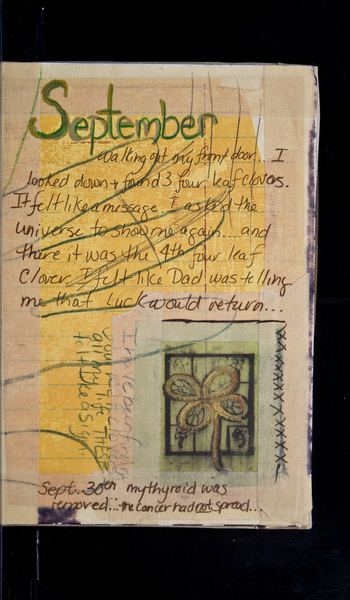 September
walking out my front door... I
looked down + found 3 four leaf clovers.
It felt like a message. I asked the
universe to show me again... and
there it was the 4th four leaf
Clover. I felt like Dad was telling
me that Luck would return...
I never found
all my life
Sept. 30th my thyroid was
removed... the cancer had not spread...